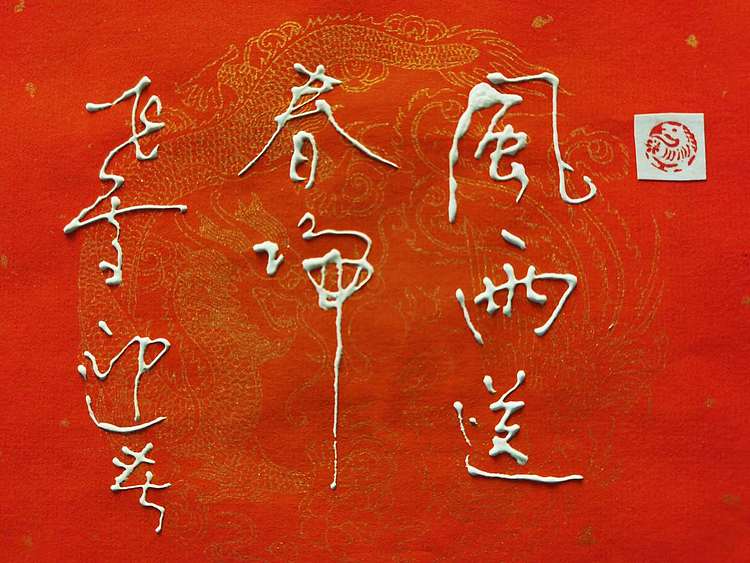 風雨送
春歸
飛雪迎春